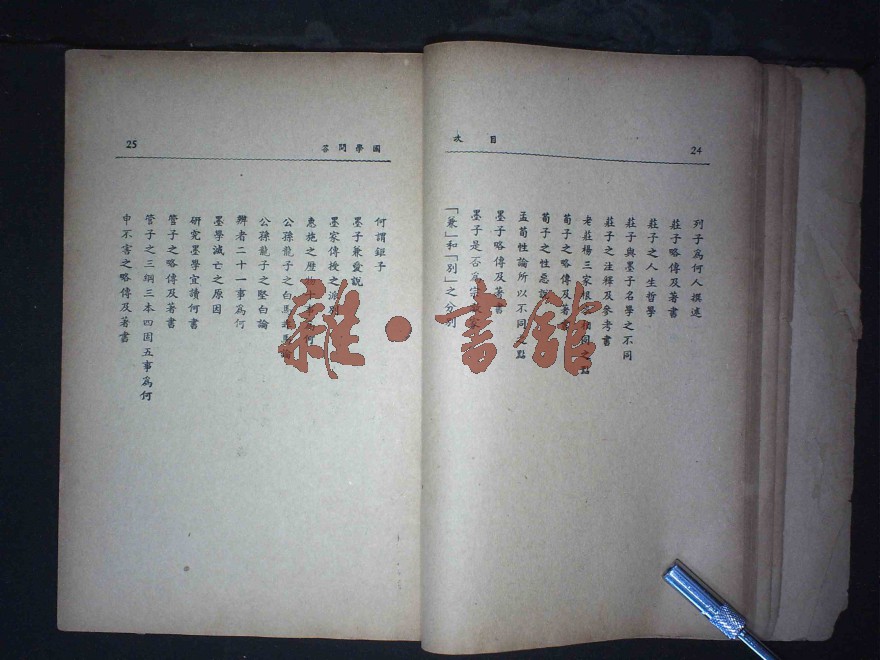 24
目次
列子為何人撰述
莊子略傳及著書
莊子之人生哲學
莊子與墨子名學之不同
莊子之注釋及參考書
老莊楊三家
荀子之略傳及著
荀子之性惡說
孟荀性論所以不同之點
墨子略傳及著書
墨子是否為宗
「兼」和「別」之分別
國學問答
25
何謂鉅子
墨子兼愛說
墨家傳授之派別
惠施之歷物十事為何
公孫龍子之白馬非馬論
公孫龍子之堅白論
辨者二十一事為何
墨學滅亡之原因
研究墨學宜讀何書
管子之略傳及著書
管子之三綱三本四固五事為何
申不害之略傳及著書
雜·書館